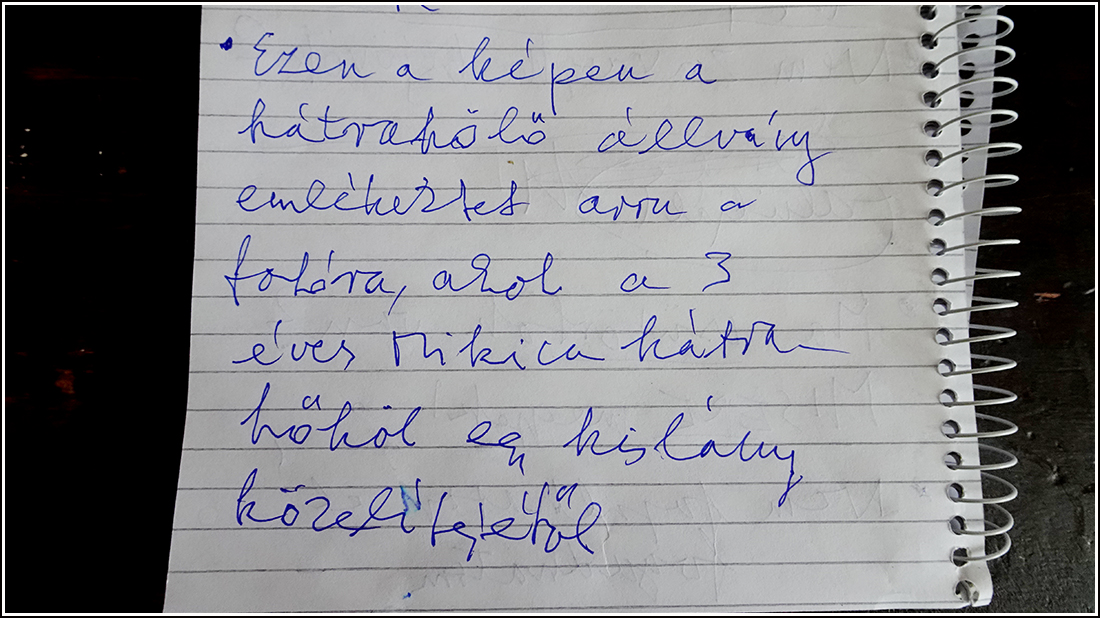 • Ezen a képen a
hátrahőlő állvány
emlékeztet arra a
fotóra, ahol a 3
éves Mikica hátra
hőköl egy kislány
közelítésétől